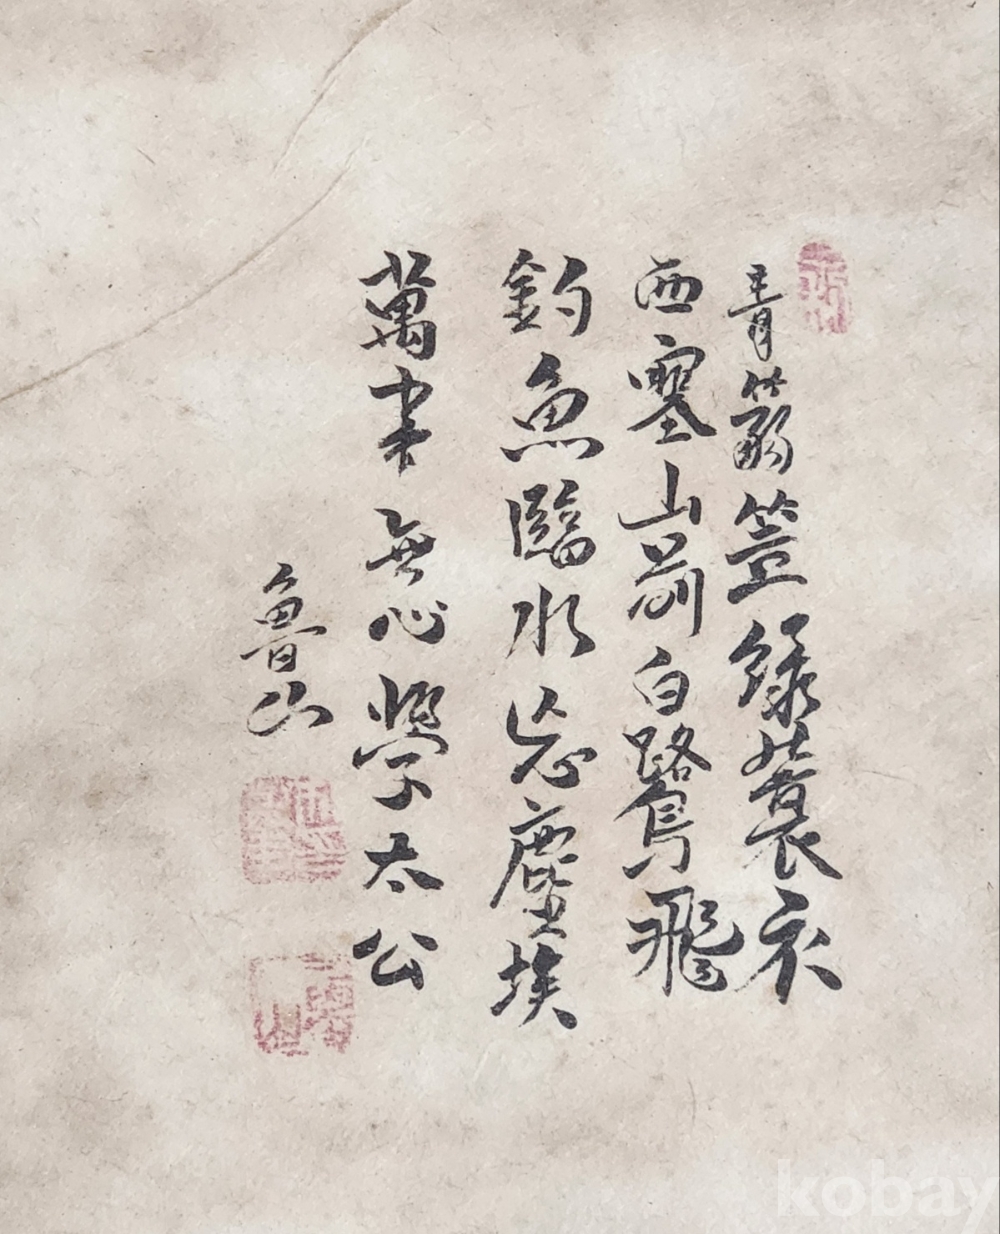 青篛笠綠蓑衣
西塞山前白鷺飛
釣魚臨水忘塵埃
萬事無心學太公
魯山
kobay